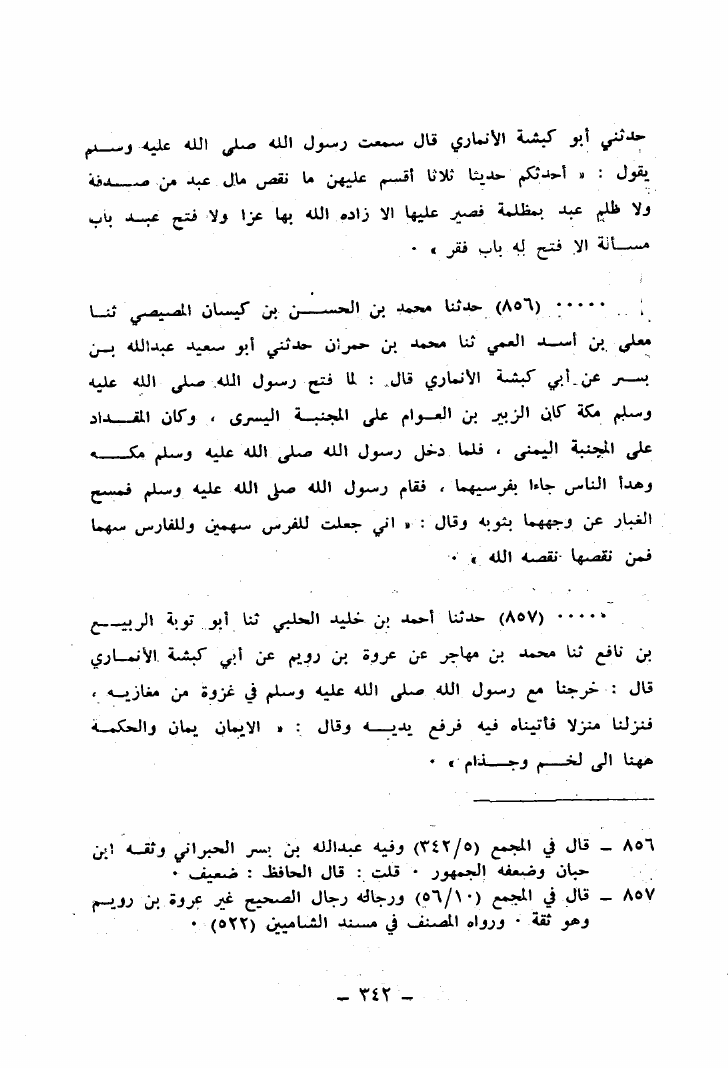 حدثني أبو كبشة الأنماري قال سمعت رسول الله صلى الله عليه وسلم
يقول : « أحدثكم حديثا ثلاثا أقسم عليهن ما نقص مال عبد من صدقة
ولا ظلم عبد بمظلمة فصبر عليها الا زاده الله بها عزا ولا فتح عبد باب
مسألة الا فتح له باب فقر » ٠
٠٠٠٠٠ (٨٥٦) حدثنا محمد بن الحسن بن كيسان المصيصي ثنا
معلى بن أسد العمي ثنا محمد بن حمران حدثني أبو سعيد عبدالله بن
بسر عن أبي كبشة الأنماري قال : لما فتح رسول الله صلى الله عليه
وسلم مكة كان الزبير بن العوام على المجنبة اليسرى ، وكان المقداد
على المجنبة اليمنى ، فلما دخل رسول الله صلى الله عليه وسلم مكة
وهدأ الناس جاءا بفرسيهما ، فقام رسول الله صلى الله عليه وسلم فمسح
الغبار عن وجههما بثوبه وقال : « اني جعلت للفرس سهمين وللفارس سهما
فمن نقصها نقصه الله » ٠
٠٠٠٠٠ (٨٥٧) حدثنا أحمد بن خليد الحلبي ثنا أبو توبة الربيع
بن نافع ثنا محمد بن مهاجر عن عروة بن رويم عن أبي كبشة الأنماري
قال : خرجنا مع رسول الله صلى الله عليه وسلم في غزوة من مغازيه ،
فنزلنا منزلا فأتيناه فيه فرفع يديه وقال : « الايمان يمان والحكمة
ههنا الى لخم وجذام » ٠
٨٥٦ – قال في المجمع (٣٤٢/٥) وفيه عبدالله بن بسر الحبراني وثقه ابن
حبان وضعفه الجمهور ٠ قلت : قال الحافظ : ضعيف ٠
٨٥٧ – قال في المجمع (٥٦/١٠) ورجاله رجال الصحيح غير عروة بن رويم
وهو ثقة ٠ ورواه المصنف في مسند الشاميين (٥٢٢) ٠
– ٣٤٢ –